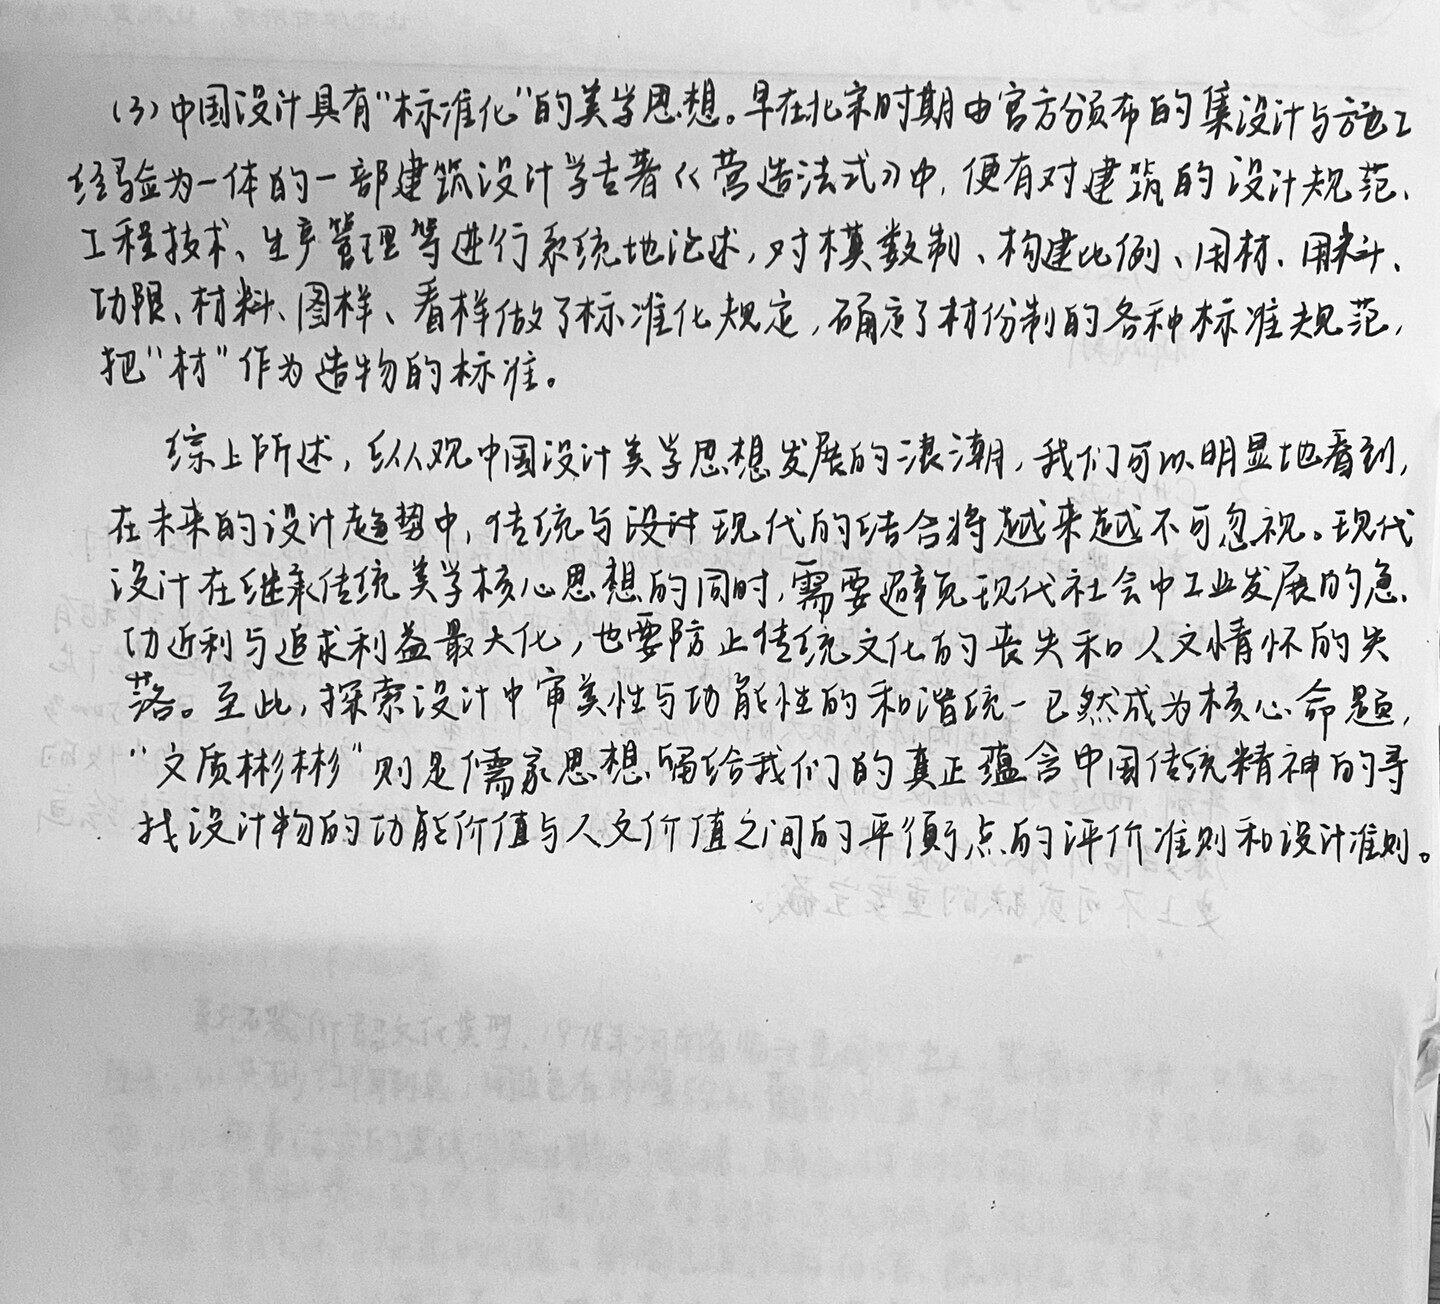 (3)中国设计具有“标准化”的美学思想。早在北宋时期由官方颁布的集设计与施工
经验为一体的一部建筑设计学古著《营造法式》中，便有对建筑的设计规范、
工程技术、生产管理等进行系统地论述，对模数制、构建比例、用材、用料、
功限、材料、图样、看样做了标准化规定，确定了材份制的各种标准规范，
把“材”作为造物的标准。
综上所述，纵观中国设计美学思想发展的浪潮，我们可以明显地看到，
在未来的设计趋势中，传统与现代的结合将越来越不可忽视。现代
设计在继承传统美学核心思想的同时，需要避免现代社会中工业发展的急
功近利与追求利益最大化，也要防止传统文化的丧失和人文情怀的失
落。至此，探索设计中审美性与功能性的和谐统一已然成为核心命题，
“文质彬彬”则是儒家思想留给我们的真正蕴含中国传统精神的寻
找设计物的功能价值与人文价值之间的平衡点的评价准则和设计准则。